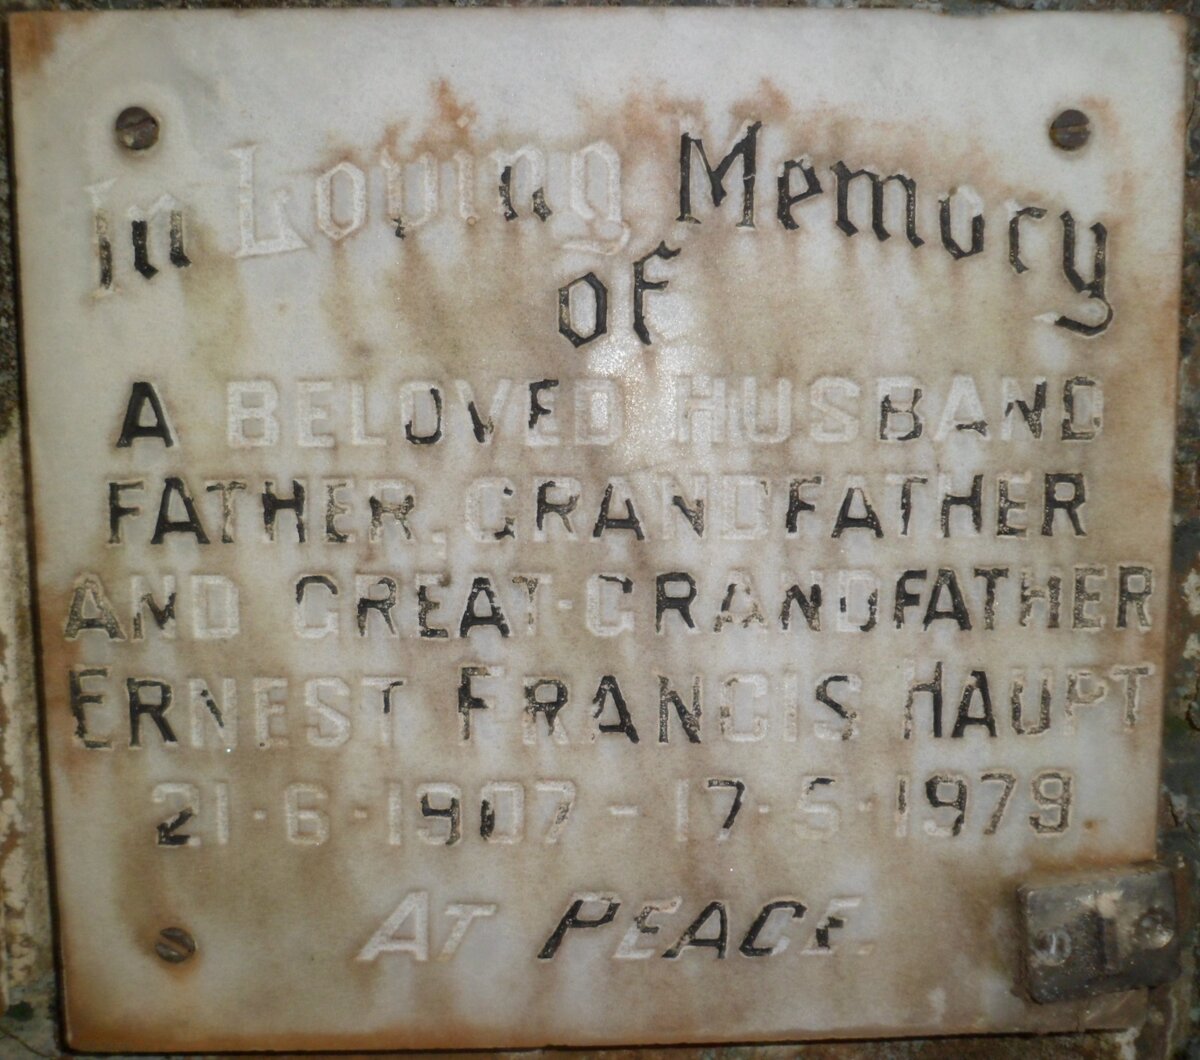 In Loving Memory
of
A BELOVED HUSBAND
FATHER, GRANDFATHER
AND GREAT-GRANDFATHER
ERNEST FRANCIS HAUPT
21·6·1907 - 17·5·1979
AT PEACE.